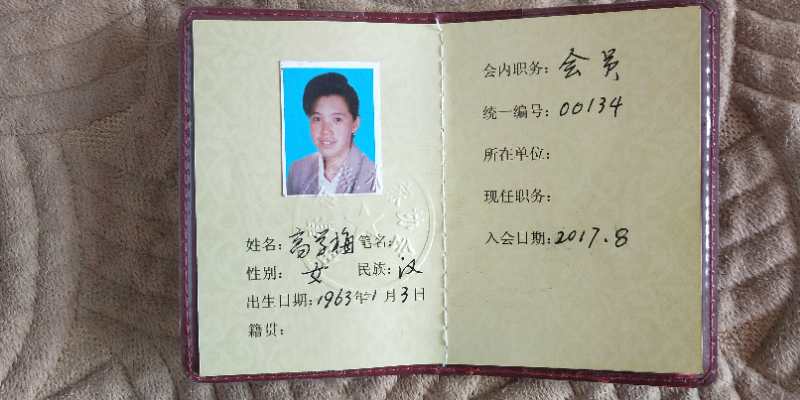 姓名：高学梅 笔名：
性别： 女 民族：汉
出生日期：1963年1月3日
籍贯：
会内职务：会员
统一编号：00134
所在单位：
现任职务：
入会日期：2017.8